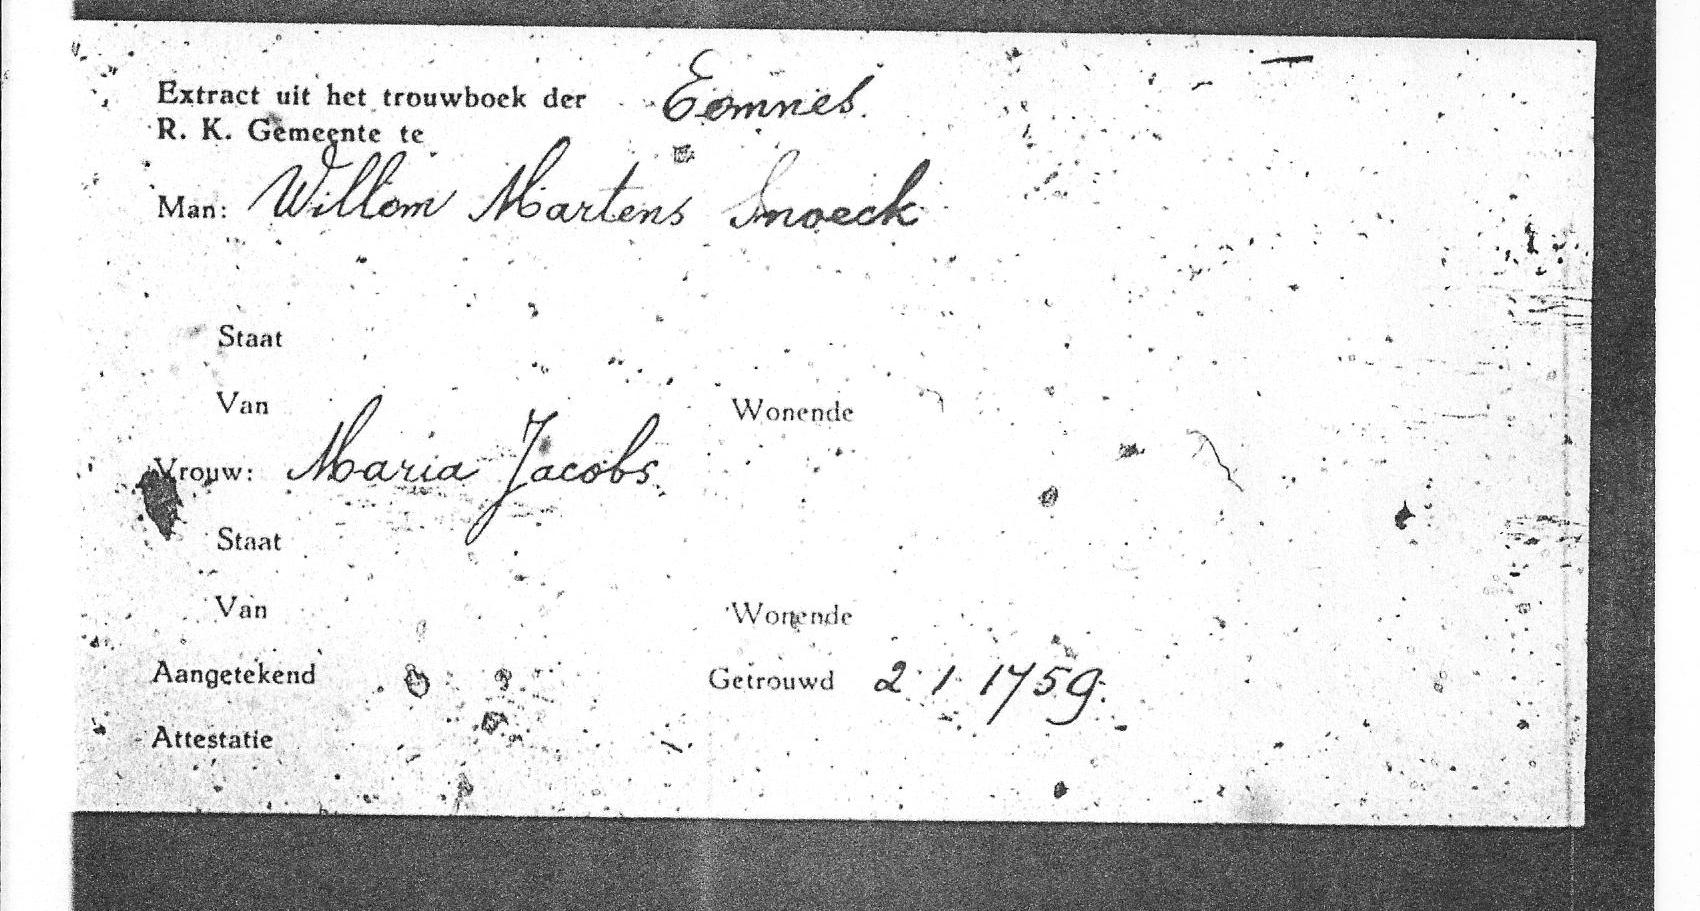 Extract uit het trouwboek der Eemnes.
R. K. Gemeente te
Man: Willem Martens Snoeck
Staat
Van Wonende
Vrouw: Maria Jacobs.
Staat
Van Wonende
Aangetekend Getrouwd 2 1 1759.
Attestatie